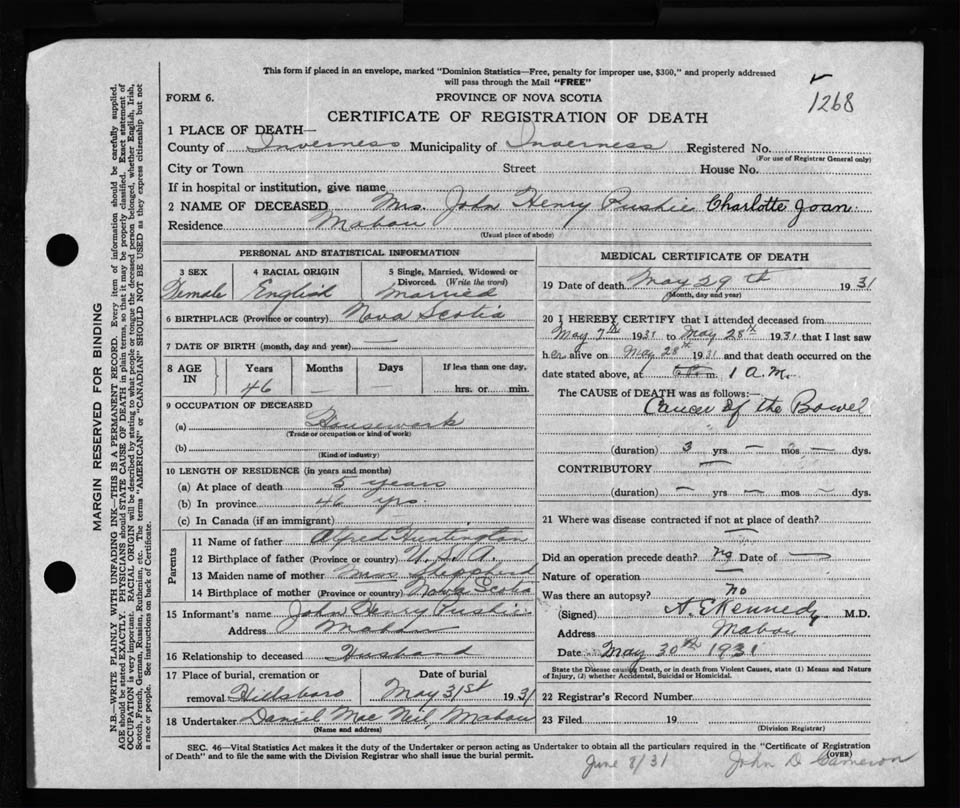 This form if placed in an envelope, marked "Dominion Statistics—Free, penalty for improper use, $300," and properly addressed
will pass through the Mail "FREE"
1268
FORM 6.
PROVINCE OF NOVA SCOTIA
CERTIFICATE OF REGISTRATION OF DEATH
1 PLACE OF DEATH—
County of Inverness Municipality of Inverness Registered No.
(For use of Registrar General only)
City or Town Street House No.
If in hospital or institution, give name
2 NAME OF DECEASED Mrs. John Henry Pushie Charlotte Joan
Residence Mabou
(Usual place of abode)
PERSONAL AND STATISTICAL INFORMATION
3 SEX Female
4 RACIAL ORIGIN English
5 Single, Married, Widowed or
Divorced. (Write the word)
Married
6 BIRTHPLACE (Province or country) Nova Scotia
7 DATE OF BIRTH (month, day and year) —
8 AGE IN
Years Months Days If less than one day,
46 — — hrs. or min.
9 OCCUPATION OF DECEASED
(a) Housework
(Trade or occupation or kind of work)
(b)
(Kind of industry)
10 LENGTH OF RESIDENCE (in years and months)
(a) At place of death 5 years
(b) In province 46 yrs.
(c) In Canada (if an immigrant)
Parents
11 Name of father Alfred Huntington
12 Birthplace of father (Province or country) U.S.A.
13 Maiden name of mother Shepherd
14 Birthplace of mother (Province or country) Nova Scotia
15 Informant's name John Henry Pushie
Address Mabou
16 Relationship to deceased Husband
17 Place of burial, cremation or Date of burial
removal Hillsboro May 31st 1931
18 Undertaker Daniel Mac Neil, Mabou
(Name and address)
MEDICAL CERTIFICATE OF DEATH
19 Date of death May 29th 1931
(Month, day and year)
20 I HEREBY CERTIFY that I attended deceased from
May 7th 1931 to May 28th 1931 that I last saw
her alive on May 28th 1931 and that death occurred on the
date stated above, at m. 1 A.M.
The CAUSE of DEATH was as follows:—
Cancer of the Bowel
(duration) 3 yrs — mos — dys.
CONTRIBUTORY —
(duration) — yrs — mos — dys.
21 Where was disease contracted if not at place of death?
—
Did an operation precede death? no Date of —
Nature of operation —
Was there an autopsy? no
(Signed) A. E. Kennedy M.D.
Address Mabou
Date May 30th 1931
State the Disease causing Death, or in death from Violent Causes, state (1) Means and Nature
of Injury, (2) whether Accidental, Suicidal or Homicidal.
22 Registrar's Record Number
23 Filed 19
(Division Registrar)
SEC. 46—Vital Statistics Act makes it the duty of the Undertaker or person acting as Undertaker to obtain all the particulars required in the "Certificate of Registration
of Death" and to file the same with the Division Registrar who shall issue the burial permit.
(OVER)
June 8/31 John D Cameron
MARGIN RESERVED FOR BINDING
N.B.—WRITE PLAINLY WITH UNFADING INK—THIS IS A PERMANENT RECORD. Every item of information should be carefully supplied.
AGE should be stated EXACTLY. PHYSICIANS should STATE CAUSE OF DEATH in plain terms, so that it may be properly classified. Exact statement of
OCCUPATION is very important. RACIAL ORIGIN will be described by stating to what people or tongue the deceased person belonged, whether English, Irish,
Scotch, French, German, Russian, Ruthenian, etc. The terms "AMERICAN" or "CANADIAN" SHOULD NOT BE USED as they express citizenship but not
a race or people. See instructions on back of Certificate.